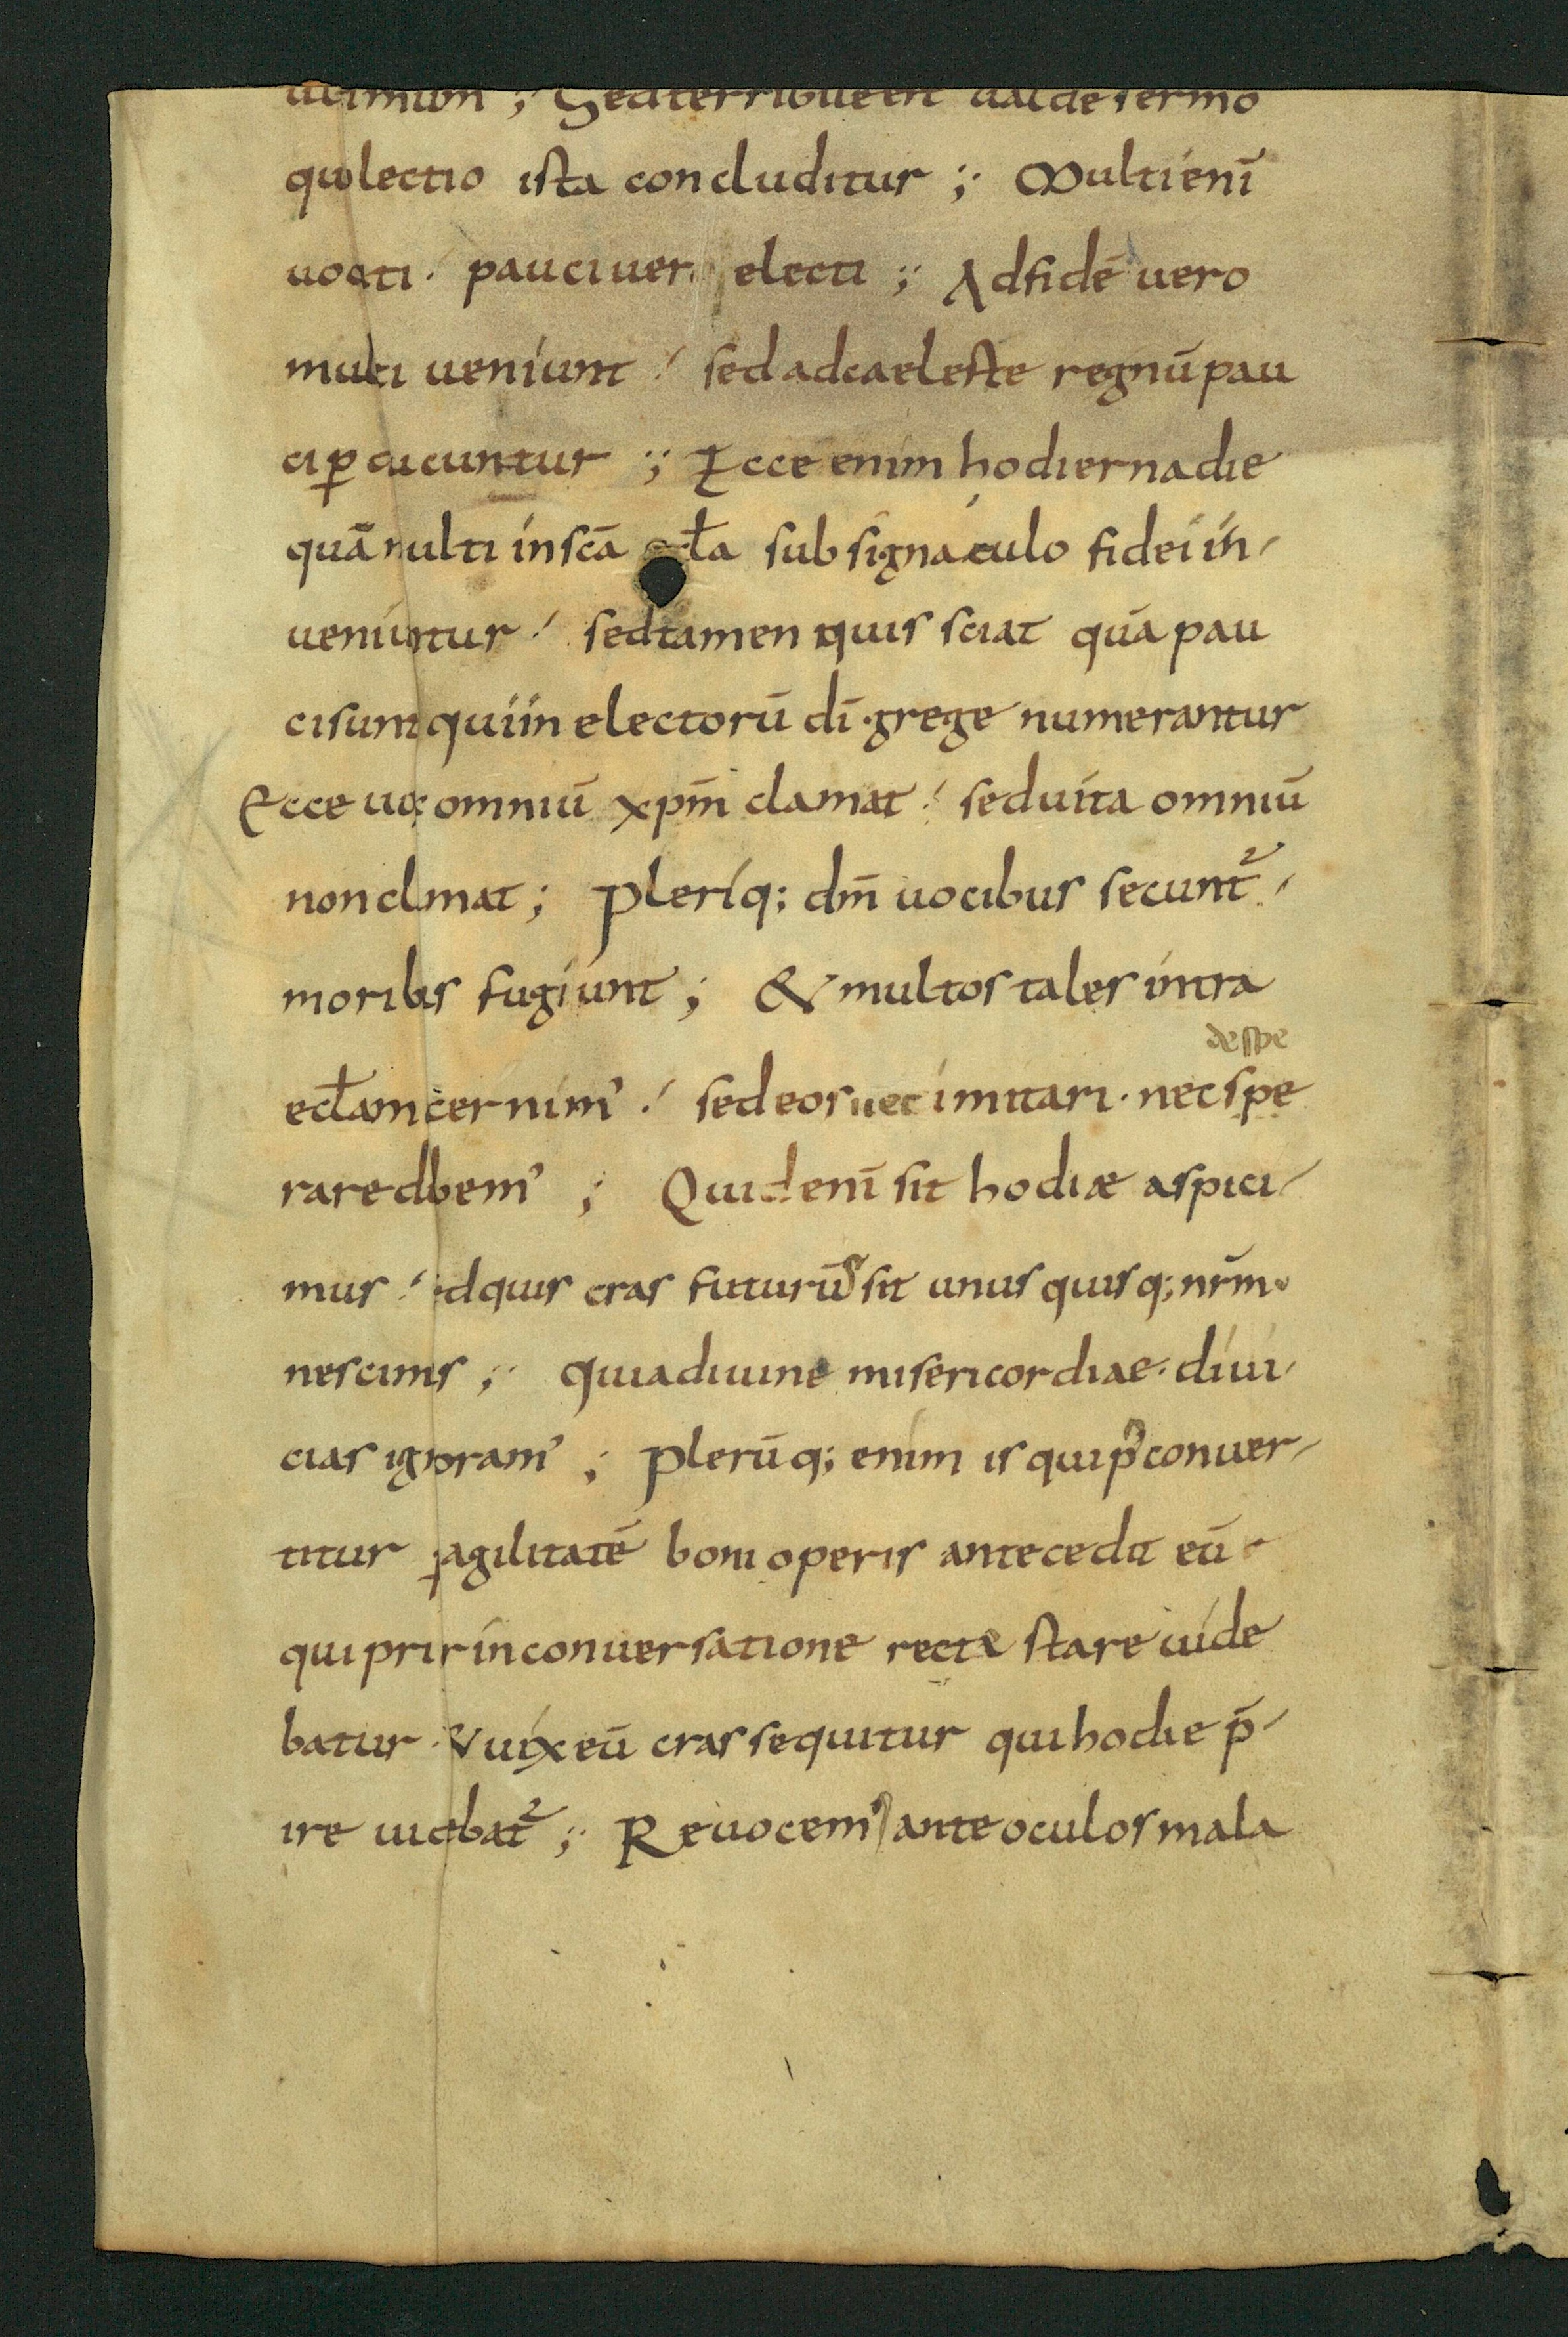 Sed terribilis est ualde sermo
quo lectio ista concluditur ; Multi enī
uocati · pauci uero electi ; Ad fidē uero
multi ueniunt / sed ad caeleste regnū pau
ci ꝑducuntur ; Ecce enim hodierna die
quā multi in scā eccła sub signaculo fidei in-
ueniuntur / sed tamen quis sciat quā pau
ci sunt qui in electorū dī · grege numerantur
Ecce uox omniū xp̄m clamat / sed uita omniū
non clamat ; Pleriq; dm̄ uocibus secunt² -
moribus fugiunt ; & multos tales intra
despe
eccłam cernim' / sed eos nec imitari · nec spe
rare debem' ; Quid enī sit hodiæ aspici-
mus / id quis cras futurus sit unus quisq; nrm̄
nescimus ; quia diuine misericordiae · diui-
cias ignoram' ; Plerūq; enim is qui p̄ conuer-
titur ꝑ agilitatē boni operis antecedit eū
qui prior in conuersatione recte stare uide
batur · & uix eū cras sequitur qui hodie p̄-
ire uidebat² ; Reuocem' ante oculos mala